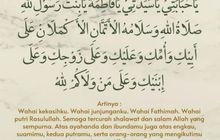 يَا حَبَابَتِيْ يَا سَيِّدَتِيْ يَا فَاطِمَةُ يَا بِنْتَ رَسُوْلِ اللهِ
صَلَاةُ اللهِ وَسَلَامُهُ الْأَتَمَّانِ الْأَكْمَلَانِ عَلَى
أَبِيْكِ وَأُمِّكِ وَعَلَيْكِ وَعَلَى زَوْجِكِ وَعَلَى
ابْنَيْكِ وَعَلَى مَنْ وَالَاكُمْ لِلهِ
Artinya :
Wahai kekasihku. Wahai junjunganku, Wahai Fathimah. Wahai
putri Rasulullah. Semoga tercurah shalawat dan salam Allah yang
sempurna. Atas ayahanda dan ibundamu juga atas engkau,
suamimu, kedua putramu, serta orang-orang yang mengikutimu